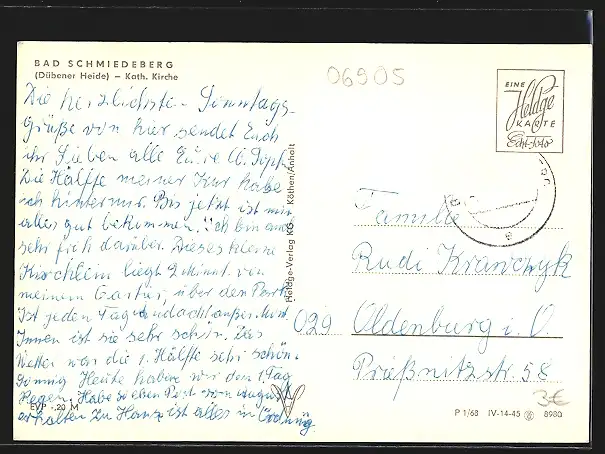 BAD SCHMIEDEBERG
(Dübener Heide) – Kath. Kirche
06905
EINE
Heldge
KARTE
Echt-Foto
Die herzlichste- Sonntags-
grüße von hier sendet Euch
ihr Lieben alle Eure
Die Hälfte meiner Kur habe
ich hinter mir. Bis jetzt ist mir
alles gut bekommen. Ich bin auch
sehr froh darüber. Dieses kleine
Kirchlein liegt 2 Minut. von
meinem Quartier, über den Park
Ist jeden Tag Andacht außer
Innen ist sie sehr schön. Das
Wetter war die 1. Hälfte sehr schön.
Sonnig Heute haben wir den 1. Tag
Regen. Habe soeben Post von
erhalten zu Hause ist alles in Ordnung.
EVP -.20 M
Heldge-Verlag KG Köthen/Anhalt
Familie
Rudi Krawczyk
029 Oldenburg i. O.
Prießnitzstr. 58
3€
P 1/68 IV-14-45 8980